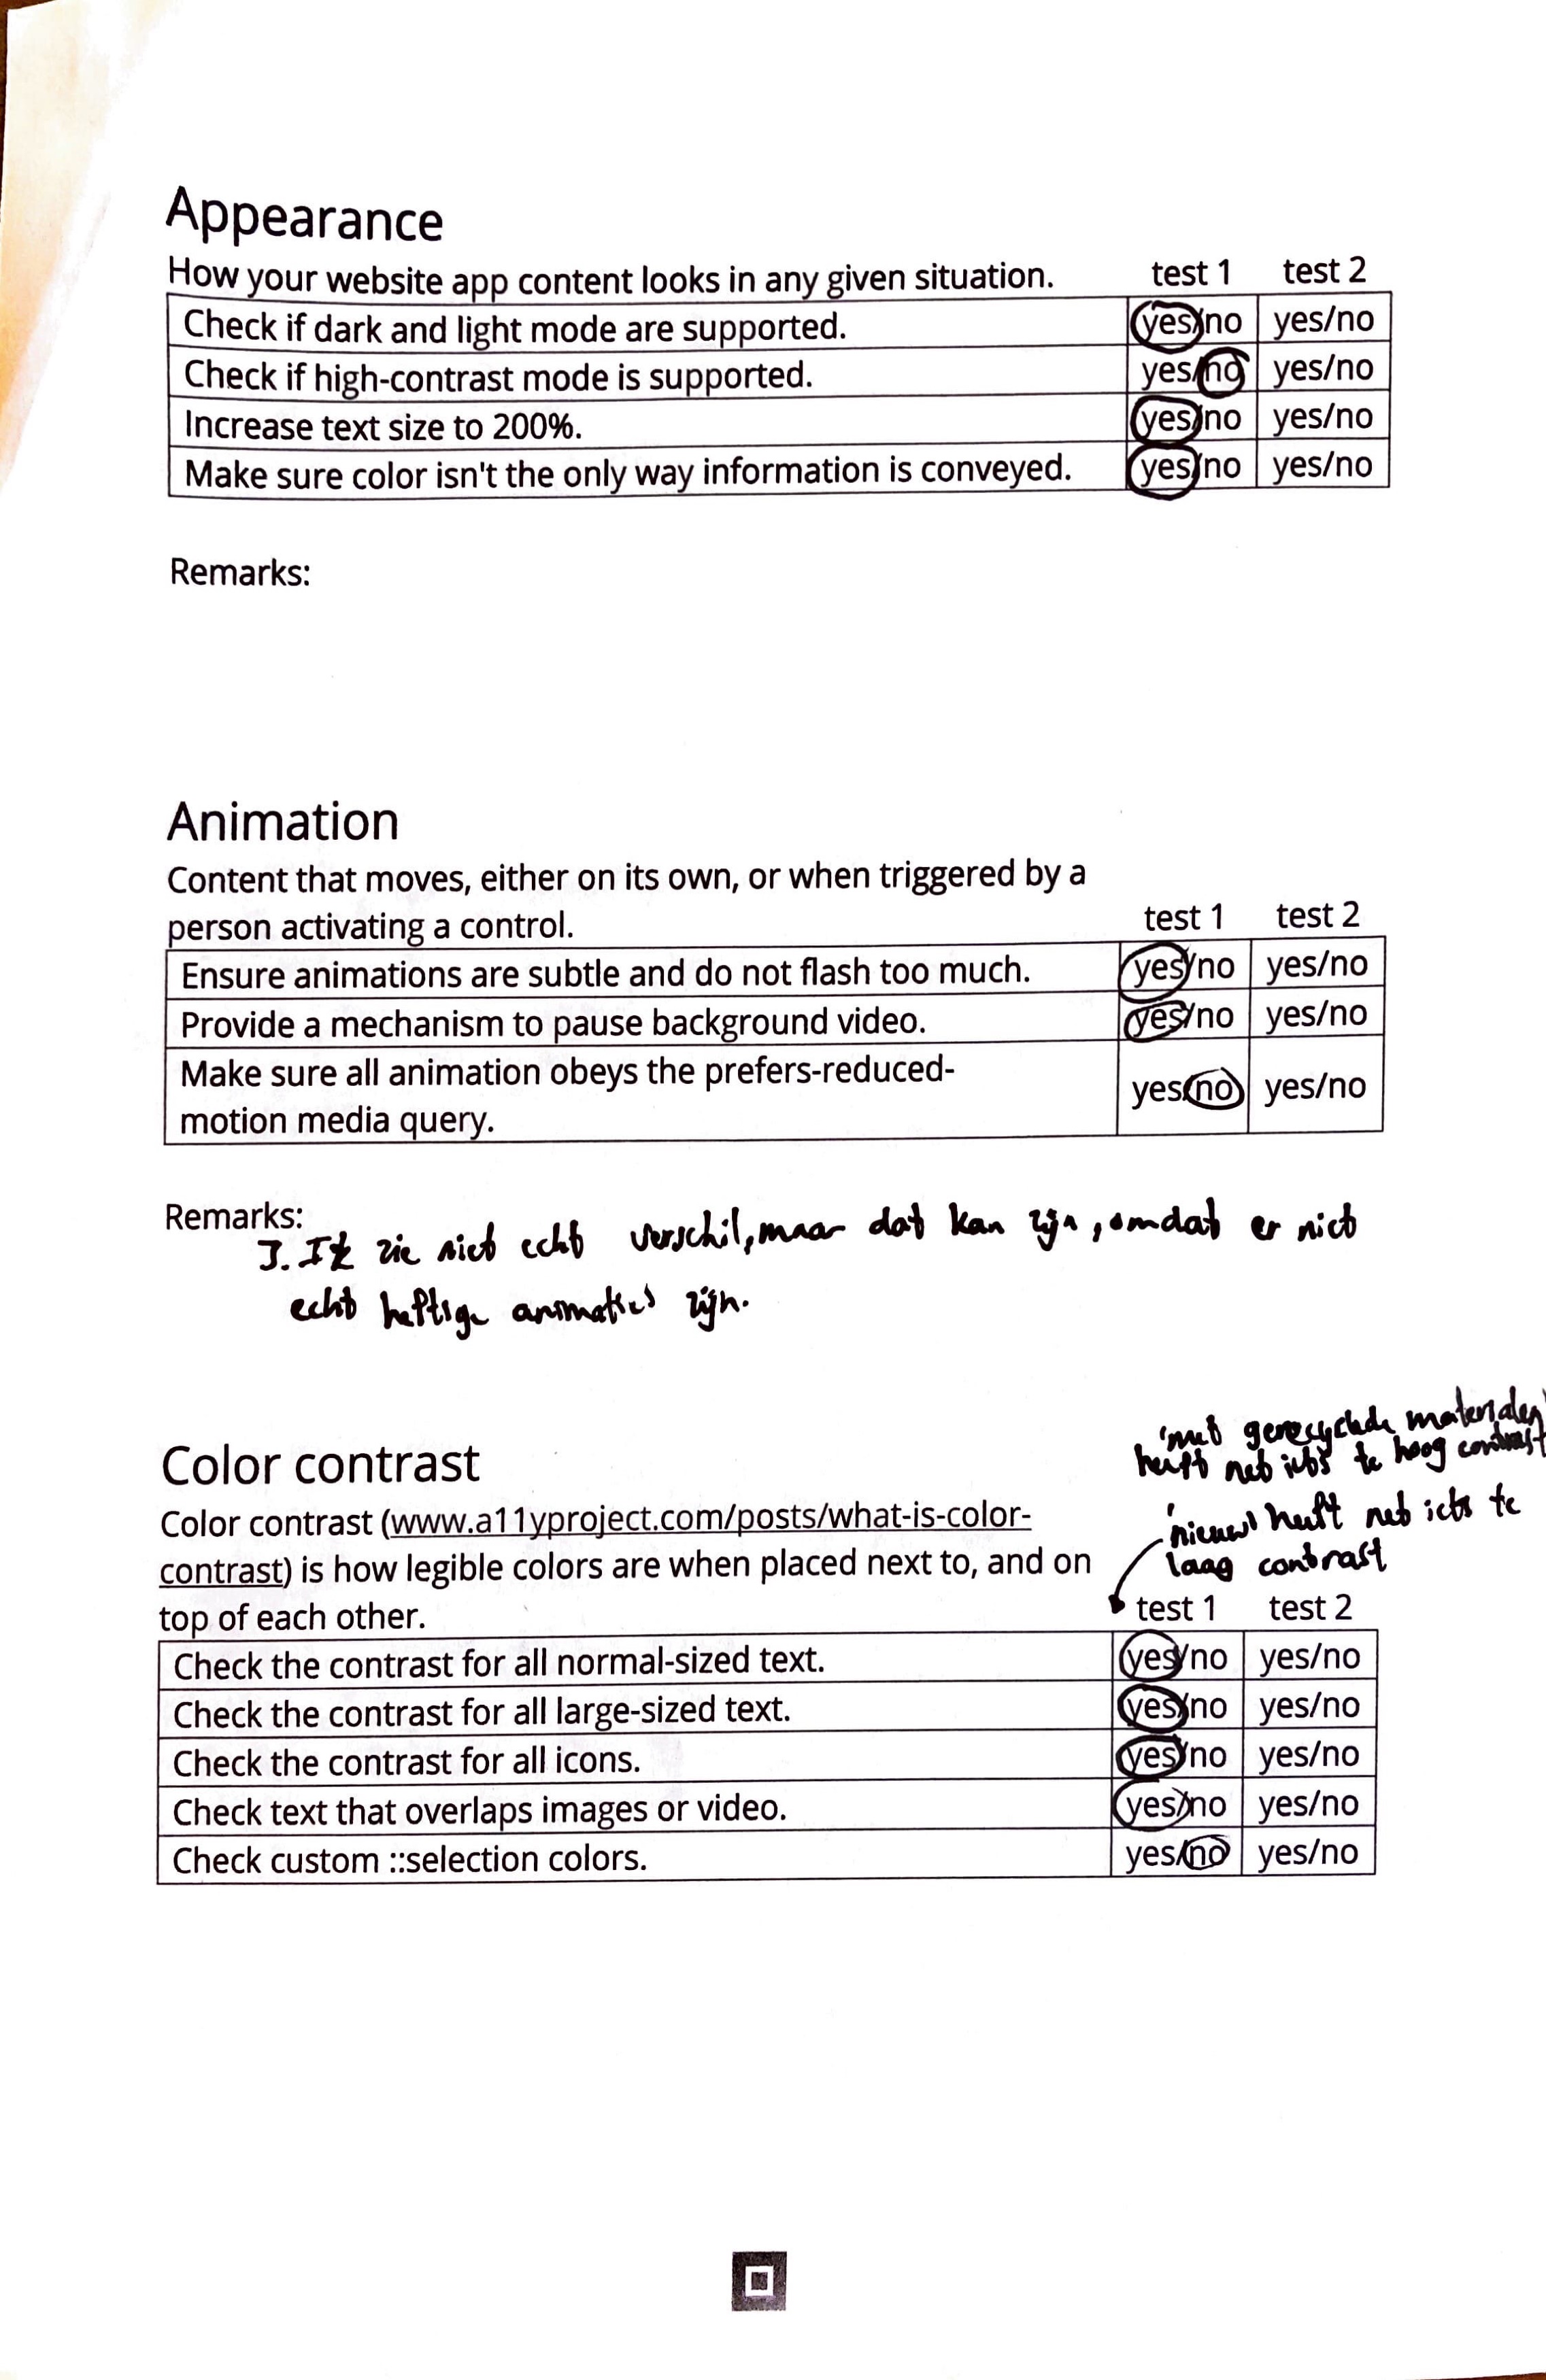 Appearance
How your website app content looks in any given situation. test 1 test 2
Check if dark and light mode are supported. yes/no yes/no
Check if high-contrast mode is supported. yes/no yes/no
Increase text size to 200%. yes/no yes/no
Make sure color isn't the only way information is conveyed. yes/no yes/no
Remarks:
Animation
Content that moves, either on its own, or when triggered by a
person activating a control. test 1 test 2
Ensure animations are subtle and do not flash too much. yes/no yes/no
Provide a mechanism to pause background video. yes/no yes/no
Make sure all animation obeys the prefers-reduced-
motion media query. yes/no yes/no
Remarks:
3. Ik zie niet echt verschil, maar dat kan zijn, omdat er niet
echt heftige animaties zijn.
'met gerecyclede materialen'
heeft net iets te hoog contrast
'nieuw' heeft net iets te
laag contrast
Color contrast
Color contrast (www.a11yproject.com/posts/what-is-color-
contrast) is how legible colors are when placed next to, and on
top of each other. test 1 test 2
Check the contrast for all normal-sized text. yes/no yes/no
Check the contrast for all large-sized text. yes/no yes/no
Check the contrast for all icons. yes/no yes/no
Check text that overlaps images or video. yes/no yes/no
Check custom ::selection colors. yes/no yes/no